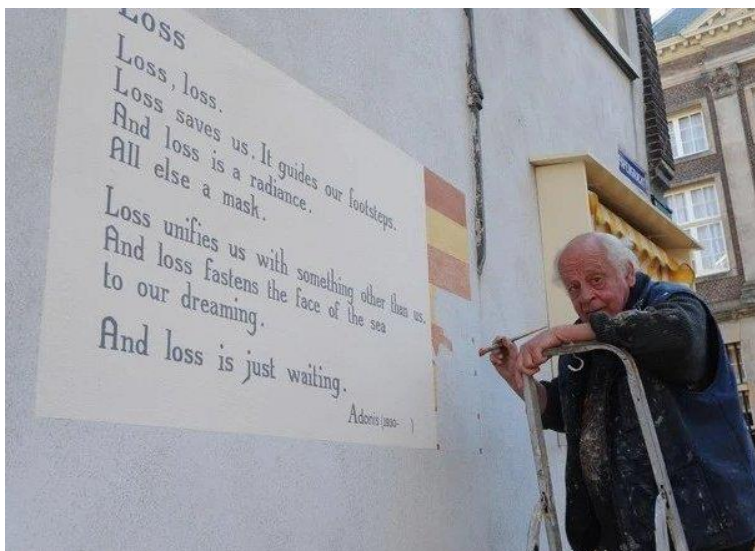 Loss
Loss, loss.
Loss saves us. It guides our footsteps.
And loss is a radiance.
All else a mask.
Loss unifies us with something other than us.
And loss fastens the face of the sea
to our dreaming.
And loss is just waiting.
Adonis (1930- )